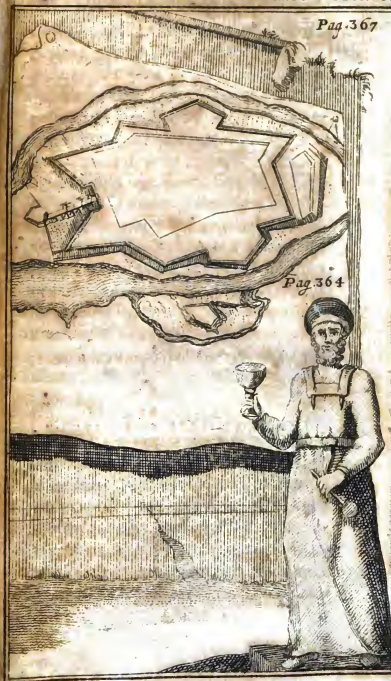 Pag. 367
Pag. 364